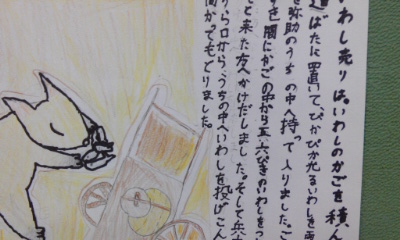 いわし売りは、いわしのかごを積ん
道ばたに置いて、ぴかぴか光るいわしを両
弥助のうちの中へ持って入りました。ご
すき間にかごの中から五、六ぴきのいわしをつ
と来た方へかけだしました。そして兵十
ら口から、うちの中へいわしを投げこん
向かってもどりました。